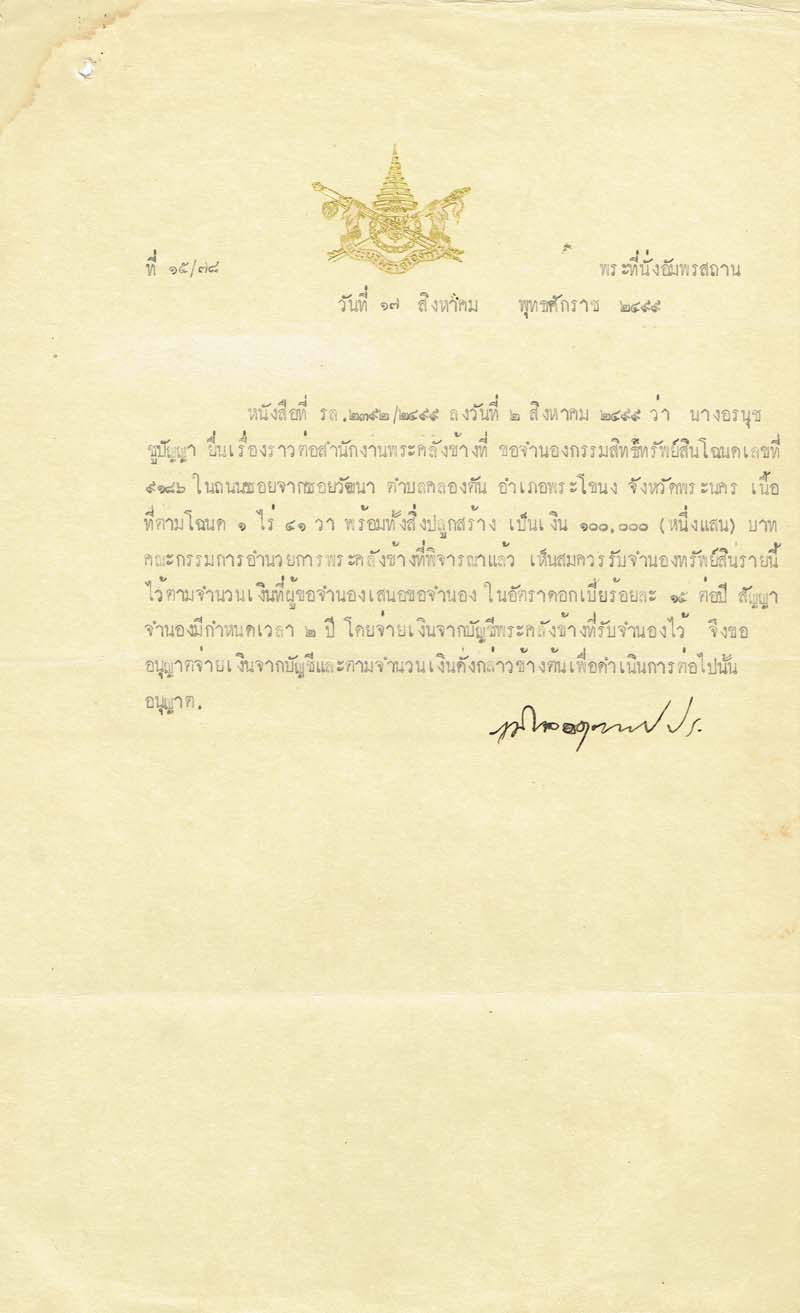 ที่ ๑๕/๗๘
พระที่นั่งอัมพรสถาน
วันที่ ๑๗ สิงหาคม พุทธศักราช ๒๔๙๕
หนังสือที่ รล.๒๗๙๒/๒๔๙๕ ลงวันที่ ๒ สิงหาคม ๒๔๙๕ ว่า นางอรนุช
ชูปัญญา ยื่นเรื่องราวต่อสำนักงานพระคลังข้างที่ ขอจำนองกรรมสิทธิ์ทรัพย์สินโฉนดเลขที่
๙๑๘๖ ในถนนซอยจากซอยวัฒนา ตำบลคลองตัน อำเภอพระโขนง จังหวัดพระนคร เนื้อ
ที่ตามโฉนด ๑ ไร่ ๔๑ วา พร้อมทั้งสิ่งปลูกสร้าง เป็นเงิน ๑๐๐,๐๐๐ (หนึ่งแสน) บาท
คณะกรรมการอำนวยการพระคลังข้างที่พิจารณาแล้ว เห็นสมควรรับจำนองทรัพย์สินรายนี้
ไว้ตามจำนวนเงินที่ผู้ขอจำนองเสนอขอจำนอง ในอัตราดอกเบี้ยร้อยละ ๑๕ ต่อปี สัญญา
จำนองมีกำหนดเวลา ๒ ปี โดยจ่ายเงินจากบัญชีพระคลังข้างที่รับจำนองไว้ จึงขอ
อนุญาตจ่ายเงินจากบัญชีและตามจำนวนเงินดั่งกล่าวข้างต้นเพื่อดำเนินการต่อไปนั้น
อนุญาต.
ภูมิพลอดุลยเดช ปร.